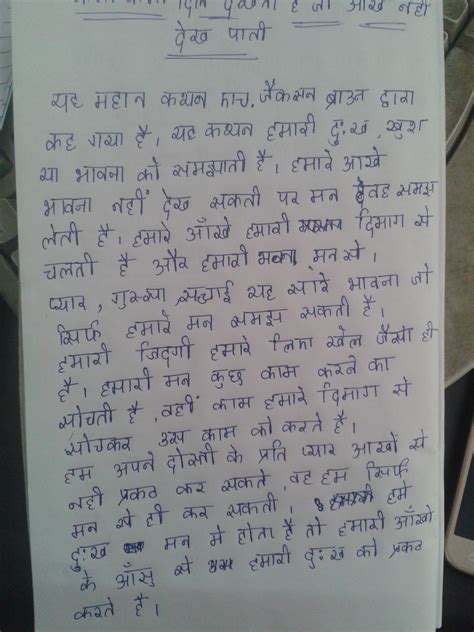 दिल देखता है जो आँखे नहीं
देख पाती
यह महान कथन एच. जैकसन ब्राउन द्वारा
कह गया है। यह कथन हमारी दुःख, खुश
या भावना को समझाती है। हमारे आखे
भावना नहीं देख सकती पर मन वह समझ
लेती है। हमारे आँखे हमारी दिमाग से
चलती है और हमारी मन से।
प्यार, गुस्सा, सच्चाई यह सारे भावना जो
सिर्फ हमारे मन समझ सकती है।
हमारी जिंदगी हमारे लिए खेल जैसा ही
है। हमारी मन कुछ काम करने का
सोचती है, वही काम हमारे दिमाग से
सोचकर उस काम को करते है।
हम अपने दोस्तों के प्रति प्यार आखों से
नही प्रकट कर सकते, वह हम सिर्फ
मन से ही कर सकती। हमे
दुःख मन मे होता है तो हमारी आँखो
के आँसु से हमारी दुःख को प्रकट
करते है।